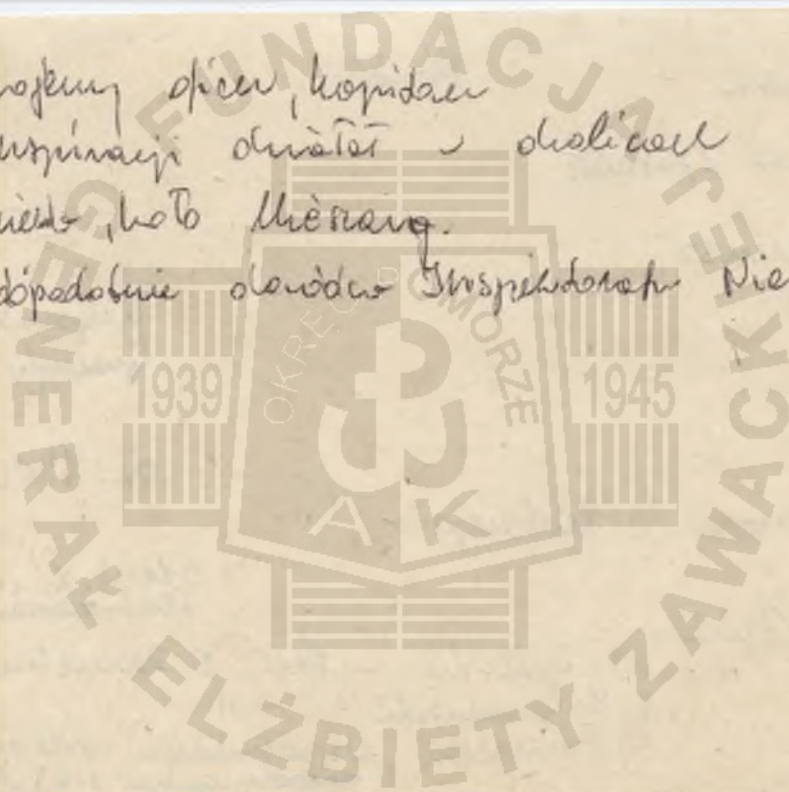 oficer, kapitan
działał w okolicach
, koło Mieszaną.
dopodobnie dowódca Inspektoratu Nie
FUNDACJA GENERAŁ ELŻBIETY ZAWACKIEJ
OKRĘG POMORZE
1939
1945
AK